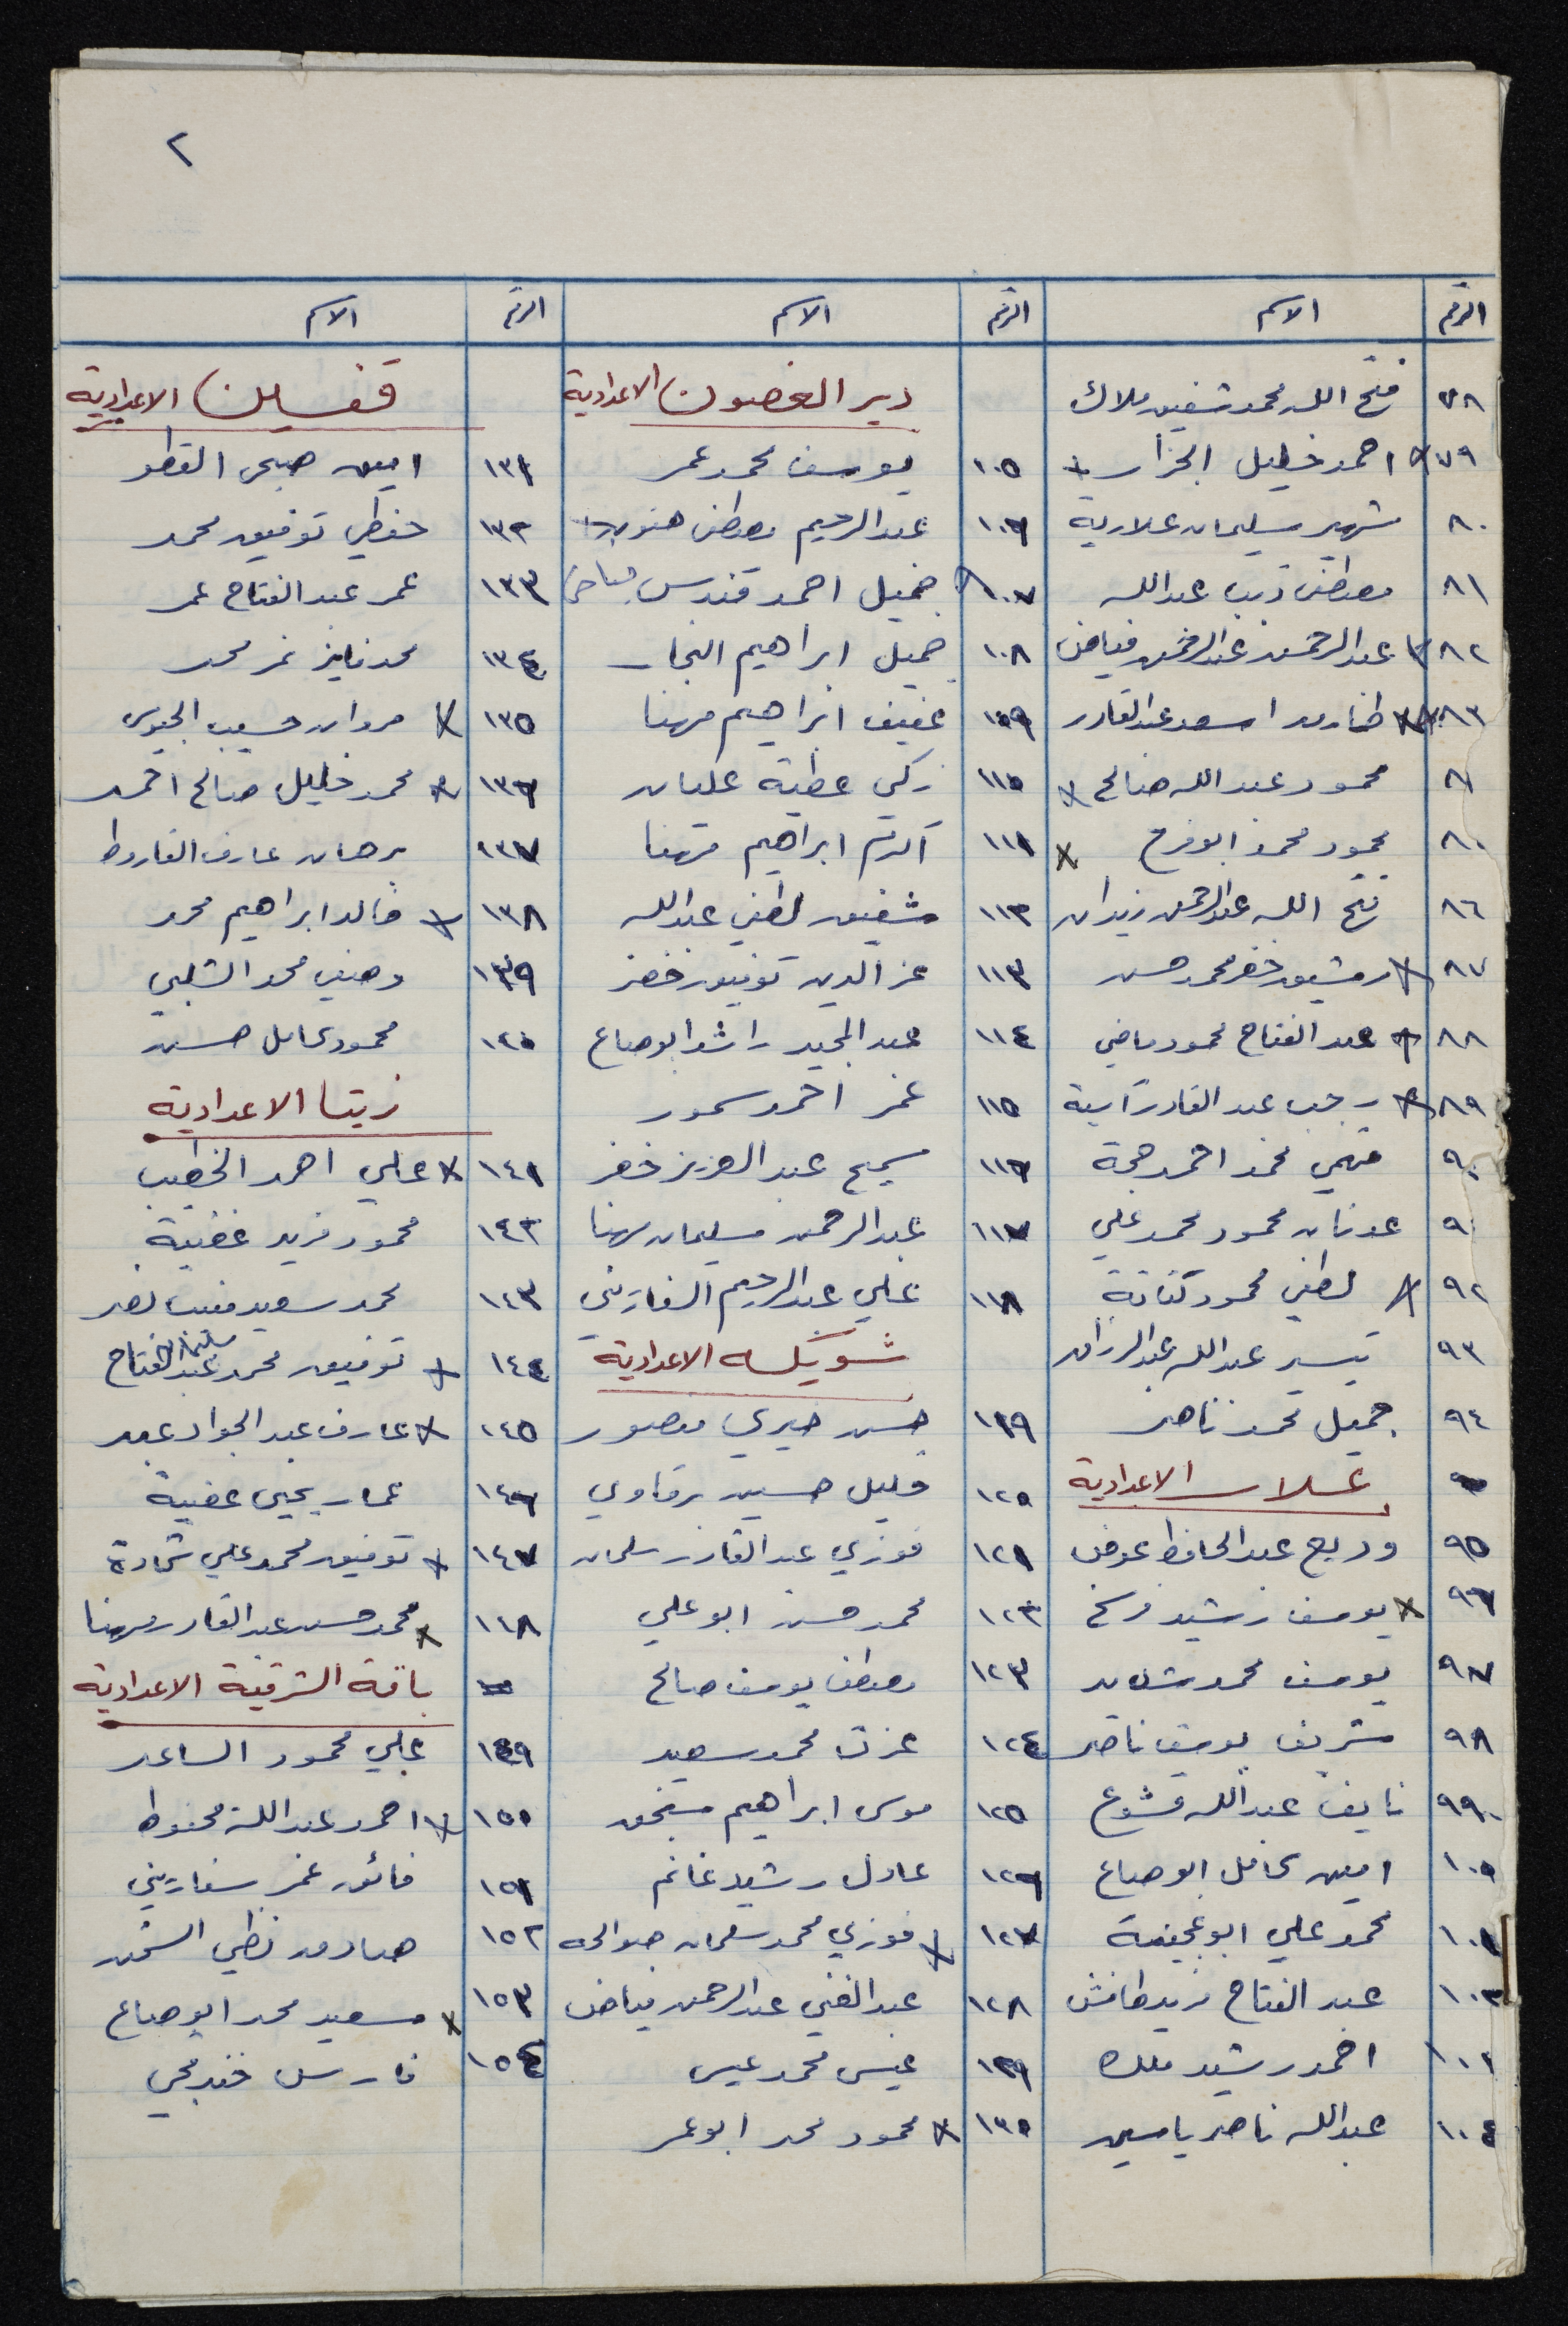 ٢
الرقم الاسم الرقم الاسم الرقم الاسم
٧٨ فتح الله محمد شفيق ملاك
٧٩ احمد خليل الجزار
٨٠ شهير سليمان علارية
٨١ مصطفى ذيب عبدالله
٨٢ عبدالرحمن عبدالرحمن فياض
٨٣ طارق اسعد عبدالقادر
محمود عبدالله صالح
محمود محمد ابوفرح
٨٦ فتح الله عبدالرحمن زيدان
٨٧ رمشيد خضر محمد حسن
٨٨ عبد الفتاح محمود ماضي
٨٩ رجب عبد القادر آسية
٩٠ فهمي محمد احمد حجة
٩ عدنان محمود محمد علي
٩٢ لطفي محمود كتانة
٩٣ تيسير عبدالله عبدالرزاق
٩٤ جميل محمد ناصر
علار الاعدادية
٩٥ وديع عبدالحافظ عوض
٩٦ يوسف رشيد فرخ
٩٧ يوسف محمد شديد
٩٨ شريف يوسف ناصر
٩٩ نايف عبدالله قشوع
١٠٠ امين كامل ابوصاع
١٠١ محمد علي ابوعجينة
١٠٢ عبد الفتاح فريد طافش
١٠٣ احمد رشيد ملك
١٠٤ عبدالله ناصر ياسين
دير الغصون الاعدادية
١٠٥ يوسف محمد عمر
١٠٦ عبدالرحيم مصطفى
١٠٧ جميل احمد قندس
١٠٨ جميل ابراهيم النجار
١٠٩ عفيف ابراهيم مهنا
١١٠ زكي عطية عليان
١١١ اكرم ابراهيم مهنا
١١٢ شفيق لطفي عبدالله
١١٣ عز الدين توفيق خضر
١١٤ عبد المجيد راشد ابوصاع
١١٥ عمر احمد سمور
١١٦ سميح عبد العزيز خضر
١١٧ عبدالرحمن سليمان مهنا
١١٨ علي عبدالرحيم السفاريني
شويكه الاعدادية
١١٩ حسن خيري منصور
١٢٠ خليل حسين برقاوي
١٢١ فوزي عبدالقادر سلمان
١٢٢ محمد حسن ابوعلي
١٢٣ مصطفى يوسف صالح
١٢٤ عزت محمد سعيد
١٢٥ موسى ابراهيم
١٢٦ عادل رشيد غانم
١٢٧ فوزي محمد سلمان صوالحه
١٢٨ عبدالغني عبدالرحمن فياض
١٢٩ عيسى محمد عيسى
١٣٠ محمود محمد ابوعمر
قفين الاعدادية
١٣١ امين صبحي القطو
١٣٢ حفظي توفيق محمد
١٣٣ عمر عبد الفتاح عمر
١٣٤ محمد فايز نمر محمد
١٣٥ مروان حسيب الجيوسي
١٣٦ محمد خليل صالح احمد
١٣٧ برهان عارف الفاروط
١٣٨ خالد ابراهيم محمد
١٣٩ وصفي محمد الشلبي
١٤٠ محمود كامل حسن
زيتا الاعدادية
١٤١ علي احمد الخطيب
١٤٢ محمود فريد عفنية
١٤٣ محمد سعيد منيب نصر
١٤٤ توفيق محمد سليمان عبدالفتاح
١٤٥ عارف عبد الجواد عبيد
١٤٦ عمار يحيى عفنية
١٤٧ توفيق محمد علي شحادة
١٤٨ محمد حسن عبدالقادر مهنا
باقة الشرقية الاعدادية
١٤٩ علي محمود الساعد
١٥٠ احمد عبدالله محفوظ
١٥١ فائق عمر سفاريني
١٥٢ صادق نظمي الشمس
١٥٣ سعيد محمد ابوصاع
١٥٤ فارس خندمجي